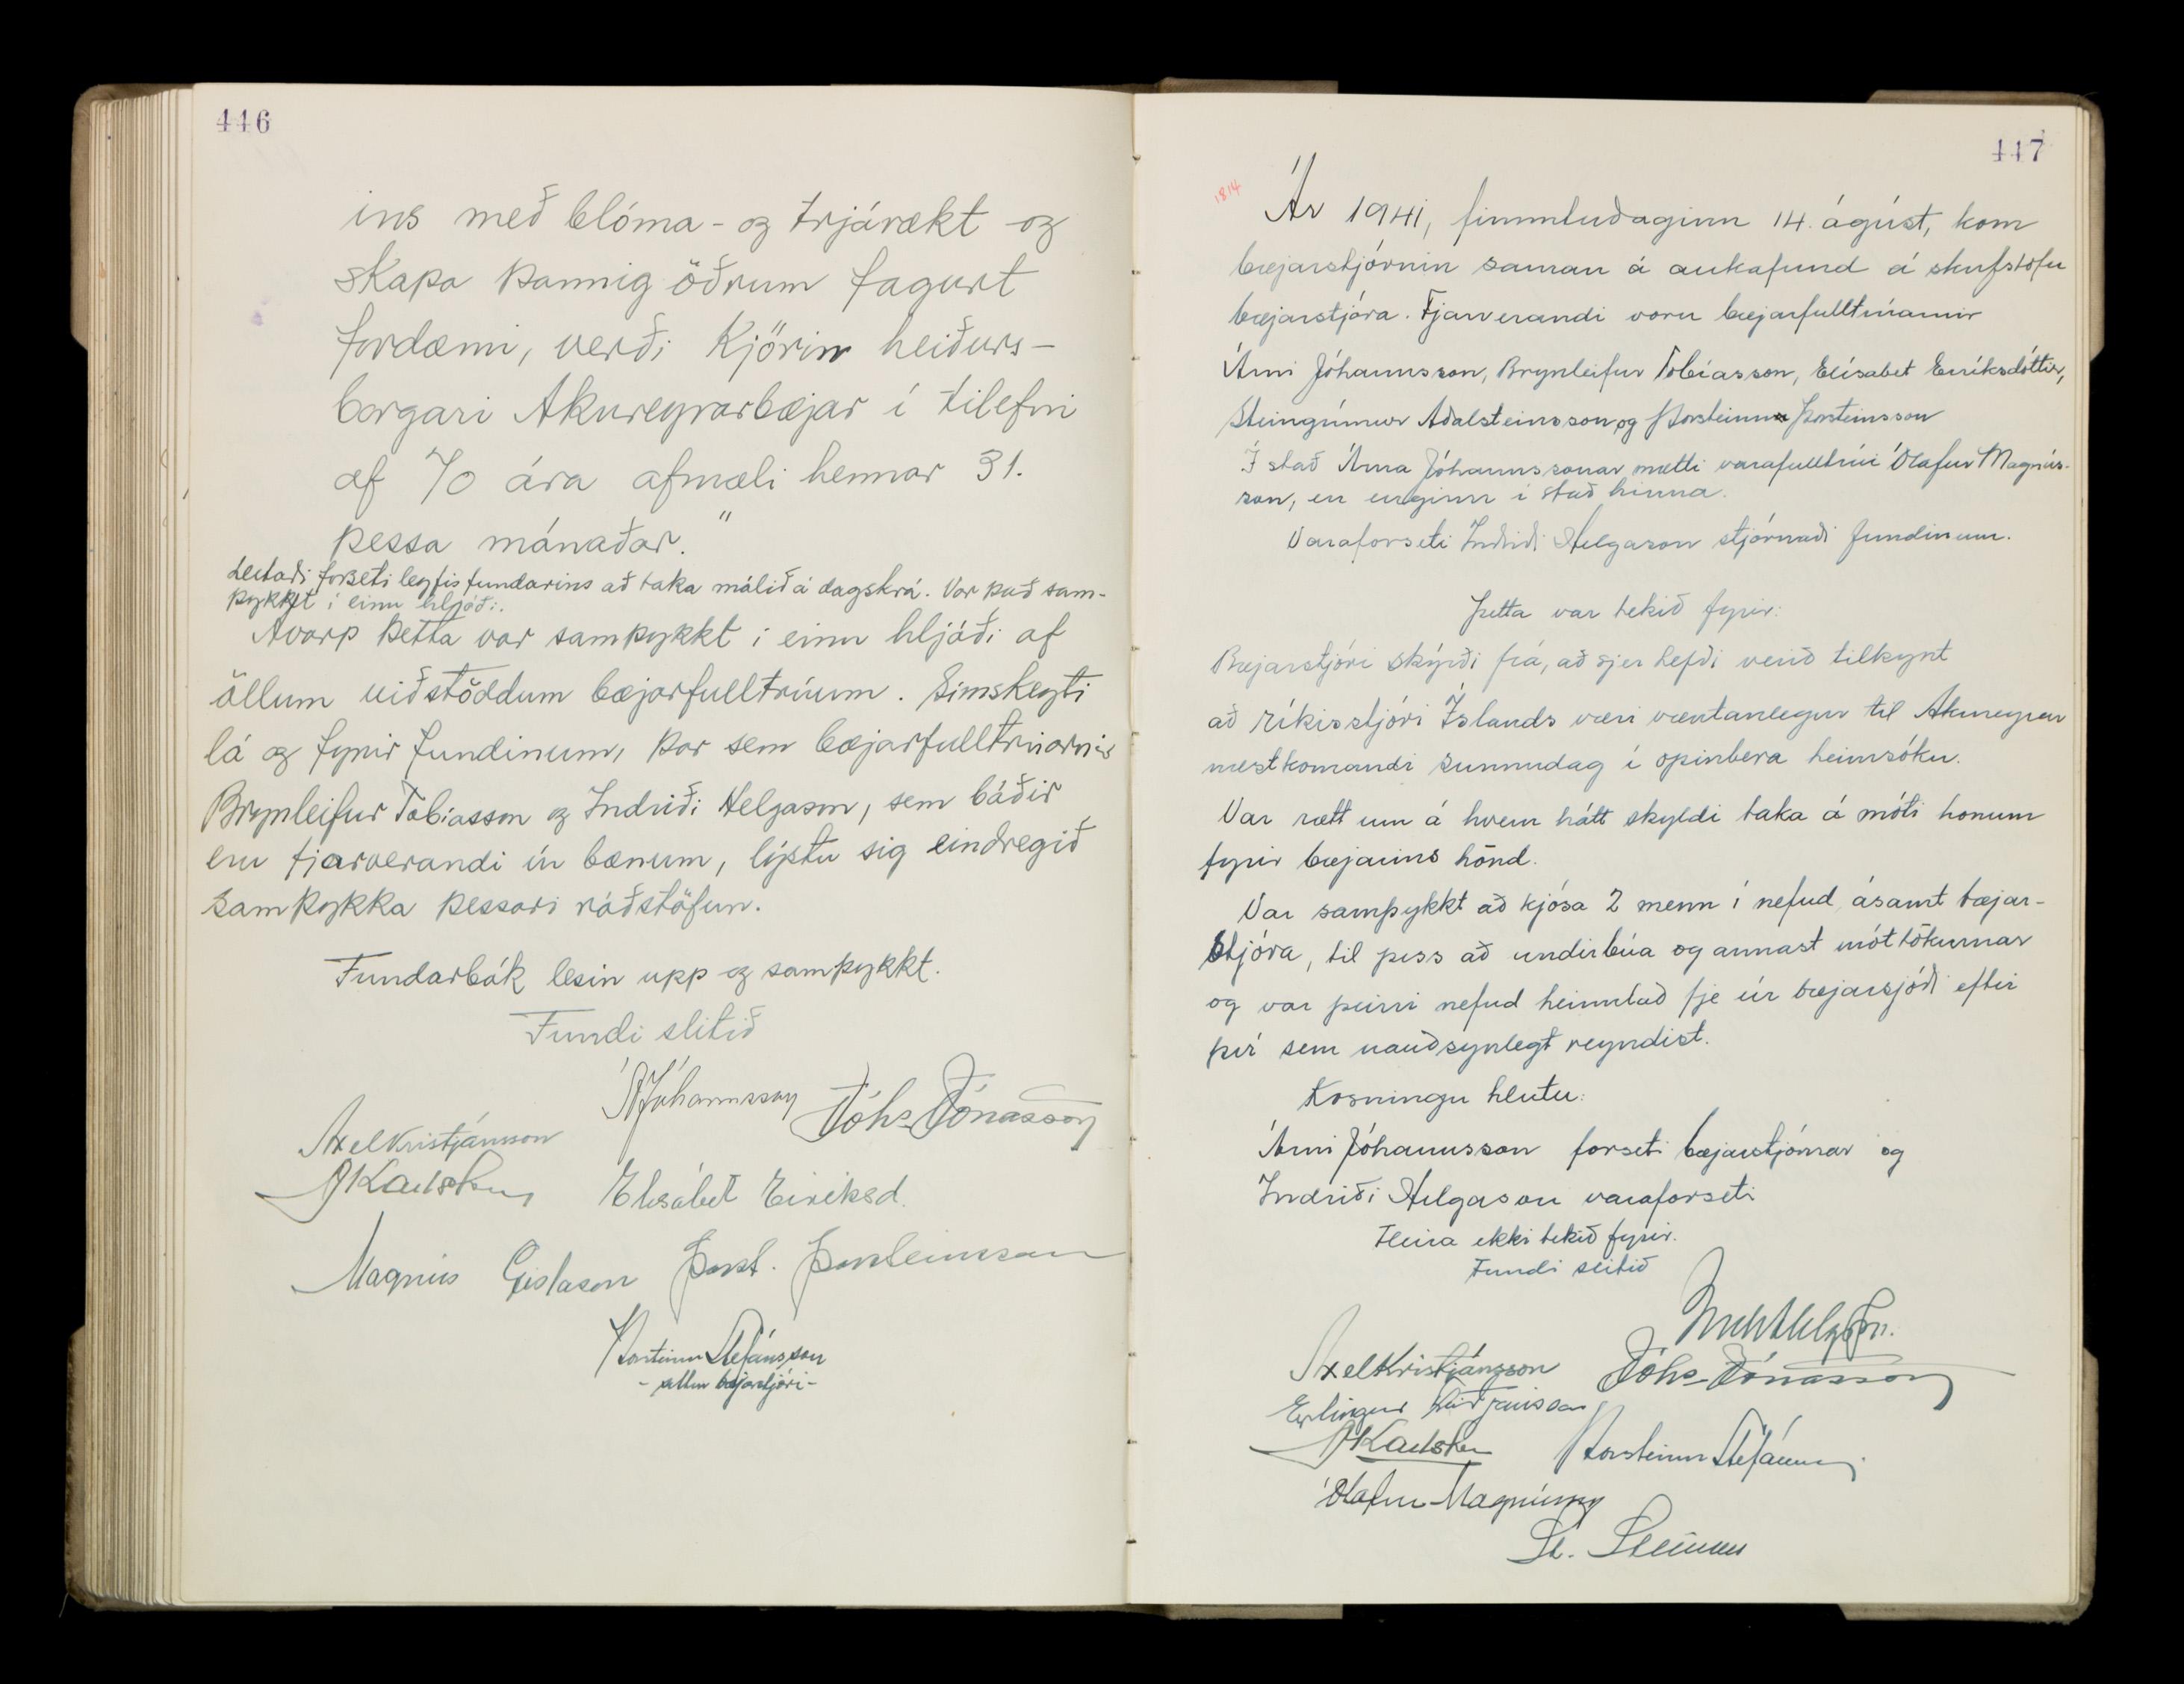 446
ins með blóma- og trjárækt og
skapa þannig öðrum fagurt
fordæmi, verði kjörin heiðurs-
borgari Akureyrarbæjar í tilefni
af 70 ára afmæli hennar 31.
þessa mánaðar."
Leitaði forseti leyfis fundarins að taka málið á dagskrá. Var það sam-
þykkt í einu hljóði.
Ávarp þetta var samþykkt í einu hljóði af
öllum viðstöddum bæjarfulltrúum. Símskeyti
lá og fyrir fundinum, þar sem bæjarfulltrúarnir
Brynleifur Tobiasson og Indriði Helgason, sem báðir
eru fjarverandi úr bænum, lýstu sig eindregið
samþykka þessari ráðstöfun.
Fundarbók lesin upp og samþykkt.
Fundi slitið
Á Jóhannsson Jóhs Jónasson
Axel Kristjánsson
J Karlsson Elisabet Eiriksd.
Magnús Gíslason Þorst. Þorsteinsson
Þorsteinn Stefánsson
- settur bæjarstjóri -
447
1814
Ár 1941, fimmtudaginn 14. ágúst, kom
bæjarstjórnin saman á aukafund á skrifstofu
bæjarstjóra. Fjarverandi voru bæjarfulltrúarnir
Árni Jóhannsson, Brynleifur Tobíasson, Elísabet Eiríksdóttir,
Steingrímur Aðalsteinsson og Þorsteinn Þorsteinsson
Í stað Árna Jóhannssonar mætti varafulltrúi Ólafur Magnús-
son, en enginn í stað hinna.
Varaforseti Indriði Helgason stjórnaði fundinum.
Þetta var tekið fyrir:
Bæjarstjóri skýrði frá, að sjer hefði verið tilkynt
að ríkisstjóri Íslands væri væntanlegur til Akureyrar
næstkomandi sunnudag í opinbera heimsókn.
Var rætt um á hvern hátt skyldi taka á móti honum
fyrir bæjarins hönd.
Var samþykkt að kjósa 2 menn í nefnd, ásamt bæjar-
stjóra, til þess að undirbúa og annast móttökurnar
og var þeirri nefnd heimilað fje úr bæjarsjóði eftir
því sem nauðsynlegt reyndist.
Kosningu hlutu:
Árni Jóhannsson forseti bæjarstjórnar og
Indriði Helgason varaforseti
Fleira ekki tekið fyrir.
Fundi slitið
Indr Helgason.
Axel Kristjánsson Jóhs Jónasson
Erlingur Friðjónsson
J Karlsson Þorsteinn Stefánsson
Ólafur Magnússon
St. Steinsen